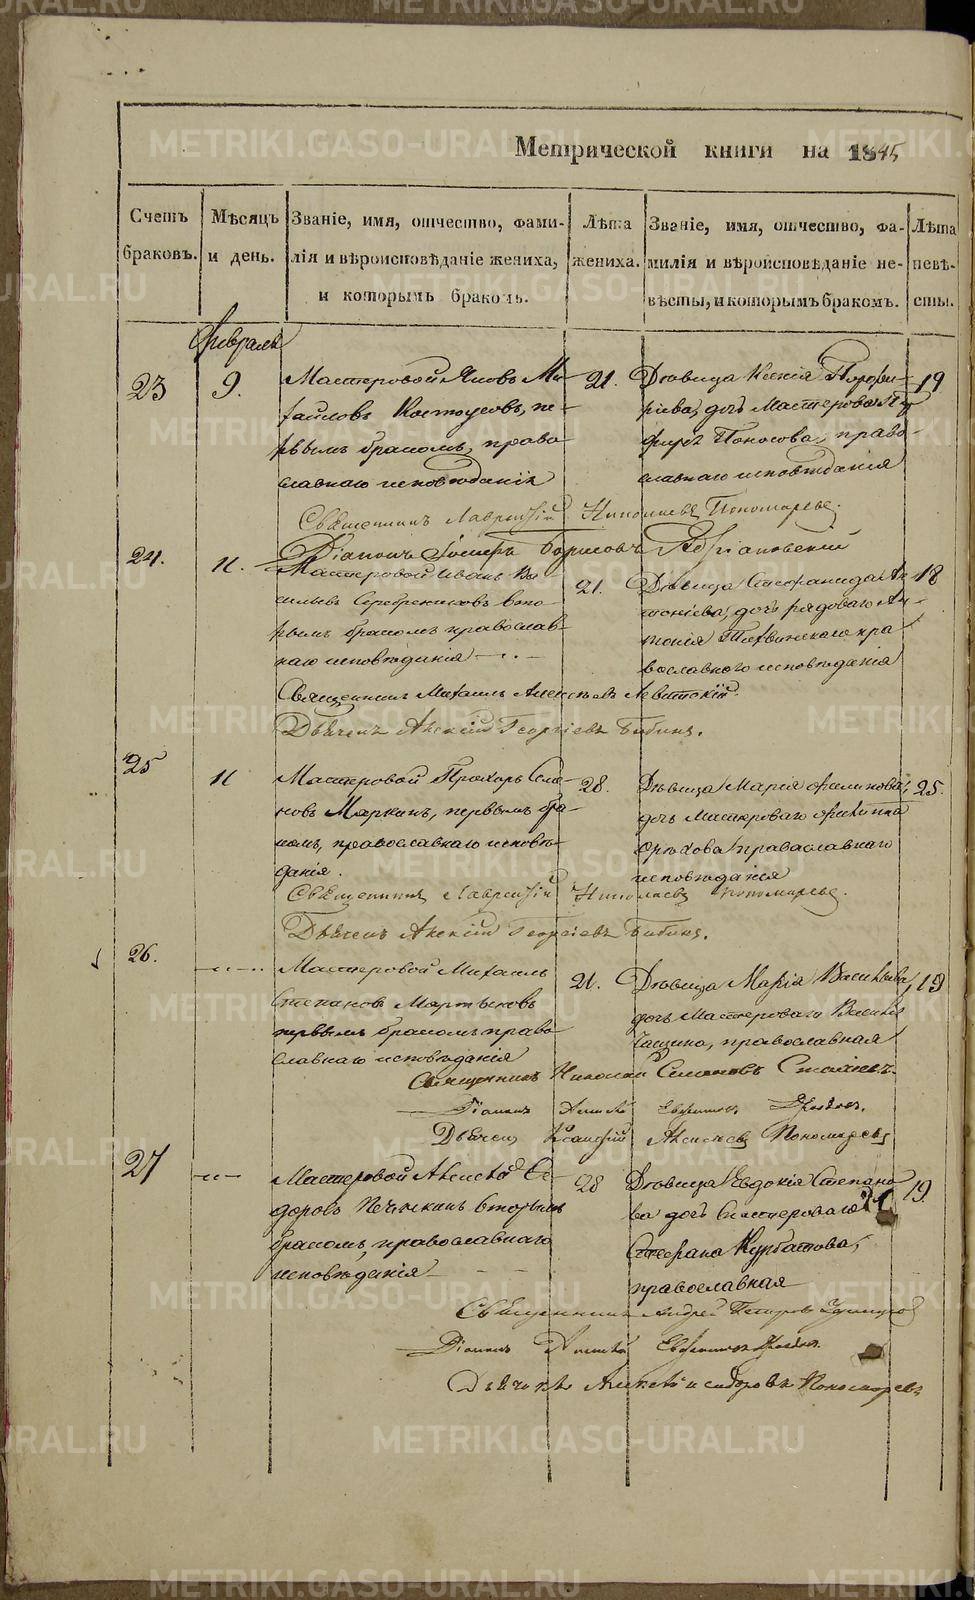 METRIKI.GASO-URAL.RU
Метрической книги на 1845
Счетъ браковъ.
Мѣсяцъ и день.
Званіе, имя, отчество, фами-
лія и вѣроисповѣданіе жениха,
и которымъ бракомъ.
Лѣта жениха.
Званіе, имя, отчество, фа-
милія и вѣроисповѣданіе не-
вѣсты, и которымъ бракомъ.
Лѣта невѣ-
сты.
Февраль
23
9.
Мастеровой Яковъ Ми-
хайловъ Костоусовъ, пе-
рвымъ бракомъ, право
славнаго исповѣданія
21.
Дѣвица Ксенія Порфи-
ріева, дочь Мастероваго Пор
фирія Поносова, право-
славнаго исповѣданія
19
Священникъ Лаврентій Николаевъ Пономаревъ.
Діаконъ Борисовъ
24.
11.
Мастеровой Иванъ Ва
сильевъ Серебрениковъ вто
рымъ бракомъ православ-
наго исповѣданія
21.
Дѣвица Стефанида Ан
тоніева, дочь рядоваго Ан
тонія пра
вославнаго исповѣданія
18
Священникъ Михаилъ Алексѣевъ Левитскій.
Дьячекъ Алексій Георгіевъ Бибинъ.
25
11
Мастеровой Прохоръ
новъ Маркинъ, первымъ бра
комъ, православнаго исповѣ-
данія.
28.
Дѣвица Марія Филипова,
дочь Мастероваго Филиппа
Орѣхова православнаго
исповѣданія
25.
Священникъ Лаврентій Николаевъ Пономаревъ.
Дьячекъ Алексій Георгіевъ Бибинъ.
26.
Мастеровой Михаилъ
Степановъ Мартысовъ
первымъ бракомъ право
славнаго исповѣданія
21.
Дѣвица Марія Васильева,
дочь Мастероваго Василія
православная
19
Священникъ Николай Симеоновъ
Діаконъ Алексѣй
Дьячекъ Алексѣевъ Пономаревъ
27
Мастеровой Алексѣй Ѳе
доровъ вторымъ
бракомъ, православнаго
исповѣданія
28
Дѣвица Евдокія Степано
ва дочь Мастероваго
Стефана Курбатова,
православная
19.
Священникъ Андрей
Діаконъ Алексѣй
Дьячекъ Алексѣй Исидоровъ Пономаревъ